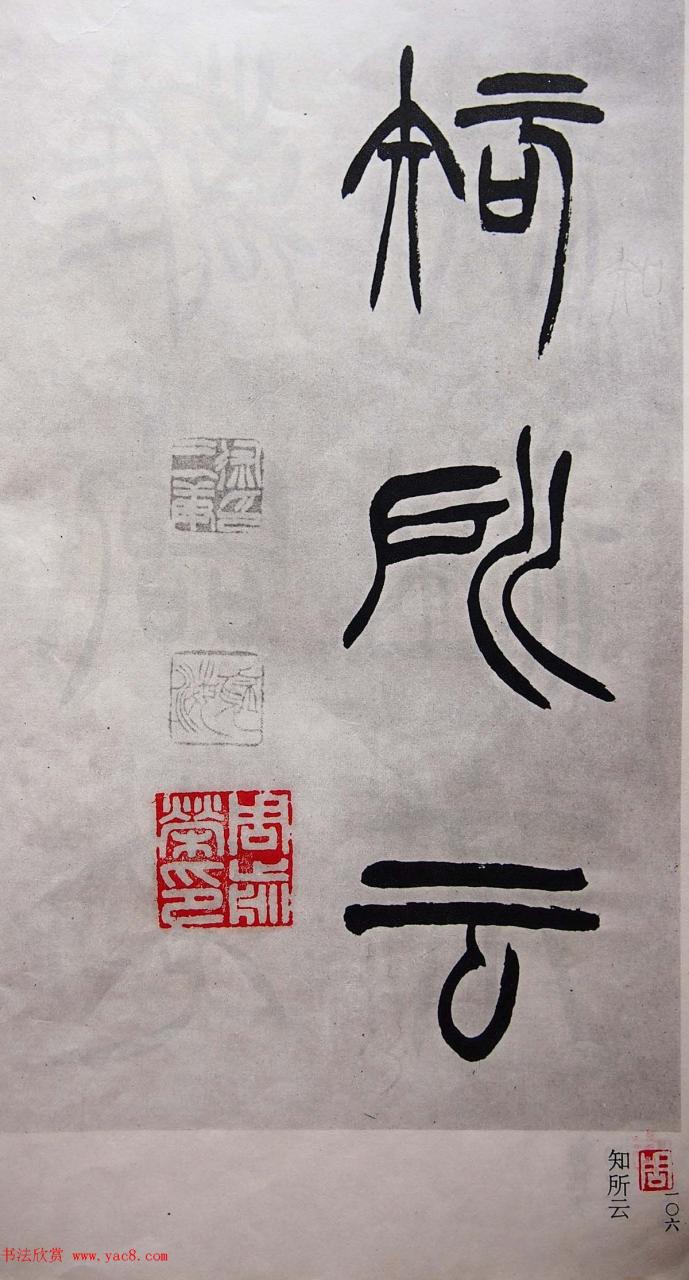 知所云
周
一〇六
知所云
书法欣赏 www.yac8.com